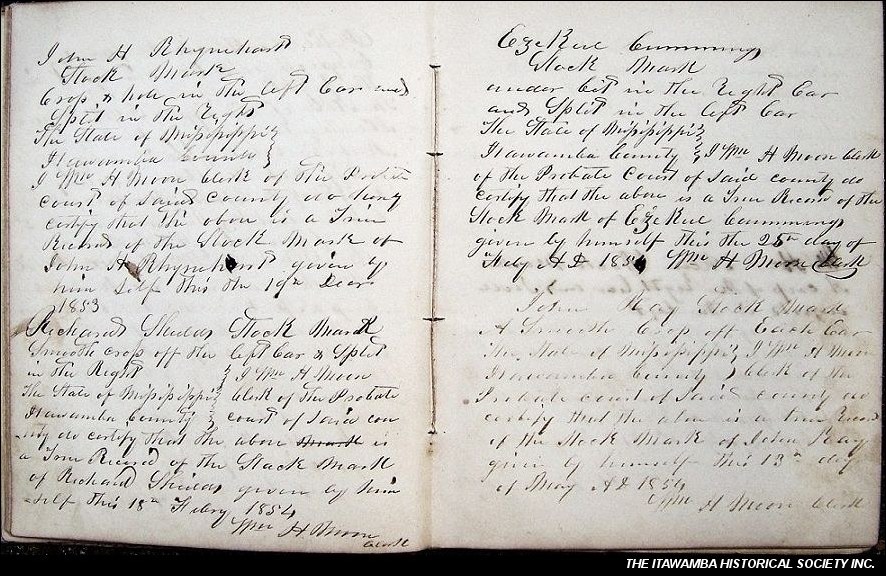 John H Rhynehart
Stock Mark
Crop & hole in the left Ear and
Split in the Right
The State of Mississippi }
Itawamba County }
I Wm H Moon Clerk of the Probate
court of Said County do hereby
certify that the above is a True
Record of the Stock Mark of
John H Rhynehart given by
him Self this the 19th Decr
1853
Richard Shields Stock Mark
Smooth crop off the left Ear & Split
in the Right } I Wm H Moon
The State of Mississippi } Clerk of the Probate
Itawamba County } court of Said coun
ty do certify that the above is
a True Record of the Stock Mark
of Richard Shields given by him
self this 18th Febry 1854
Wm H Moon
Clerk
Ezekiel Cummings
Stock Mark
under bit in the Right Ear
and Split in the left Ear
The State of Mississippi }
Itawamba County } I Wm H Moon Clerk
of the Probate Court of Said county do
certify that the above is a True Record of the
Stock Mark of Ezekiel Cummings
given by himself this the 25th day of
Feby A D 1854 Wm H Moon Clerk
John Ray Stock Mark
A Smooth Crop off Each Ear
The State of Mississippi } I Wm H Moon
Itawamba County } Clerk of the
Probate court of Said county do
certify that the above is a true Record
of the Stock Mark of John Ray
given by himself this 13th day
of May A D 1854
Wm H Moon Clerk
THE ITAWAMBA HISTORICAL SOCIETY INC.